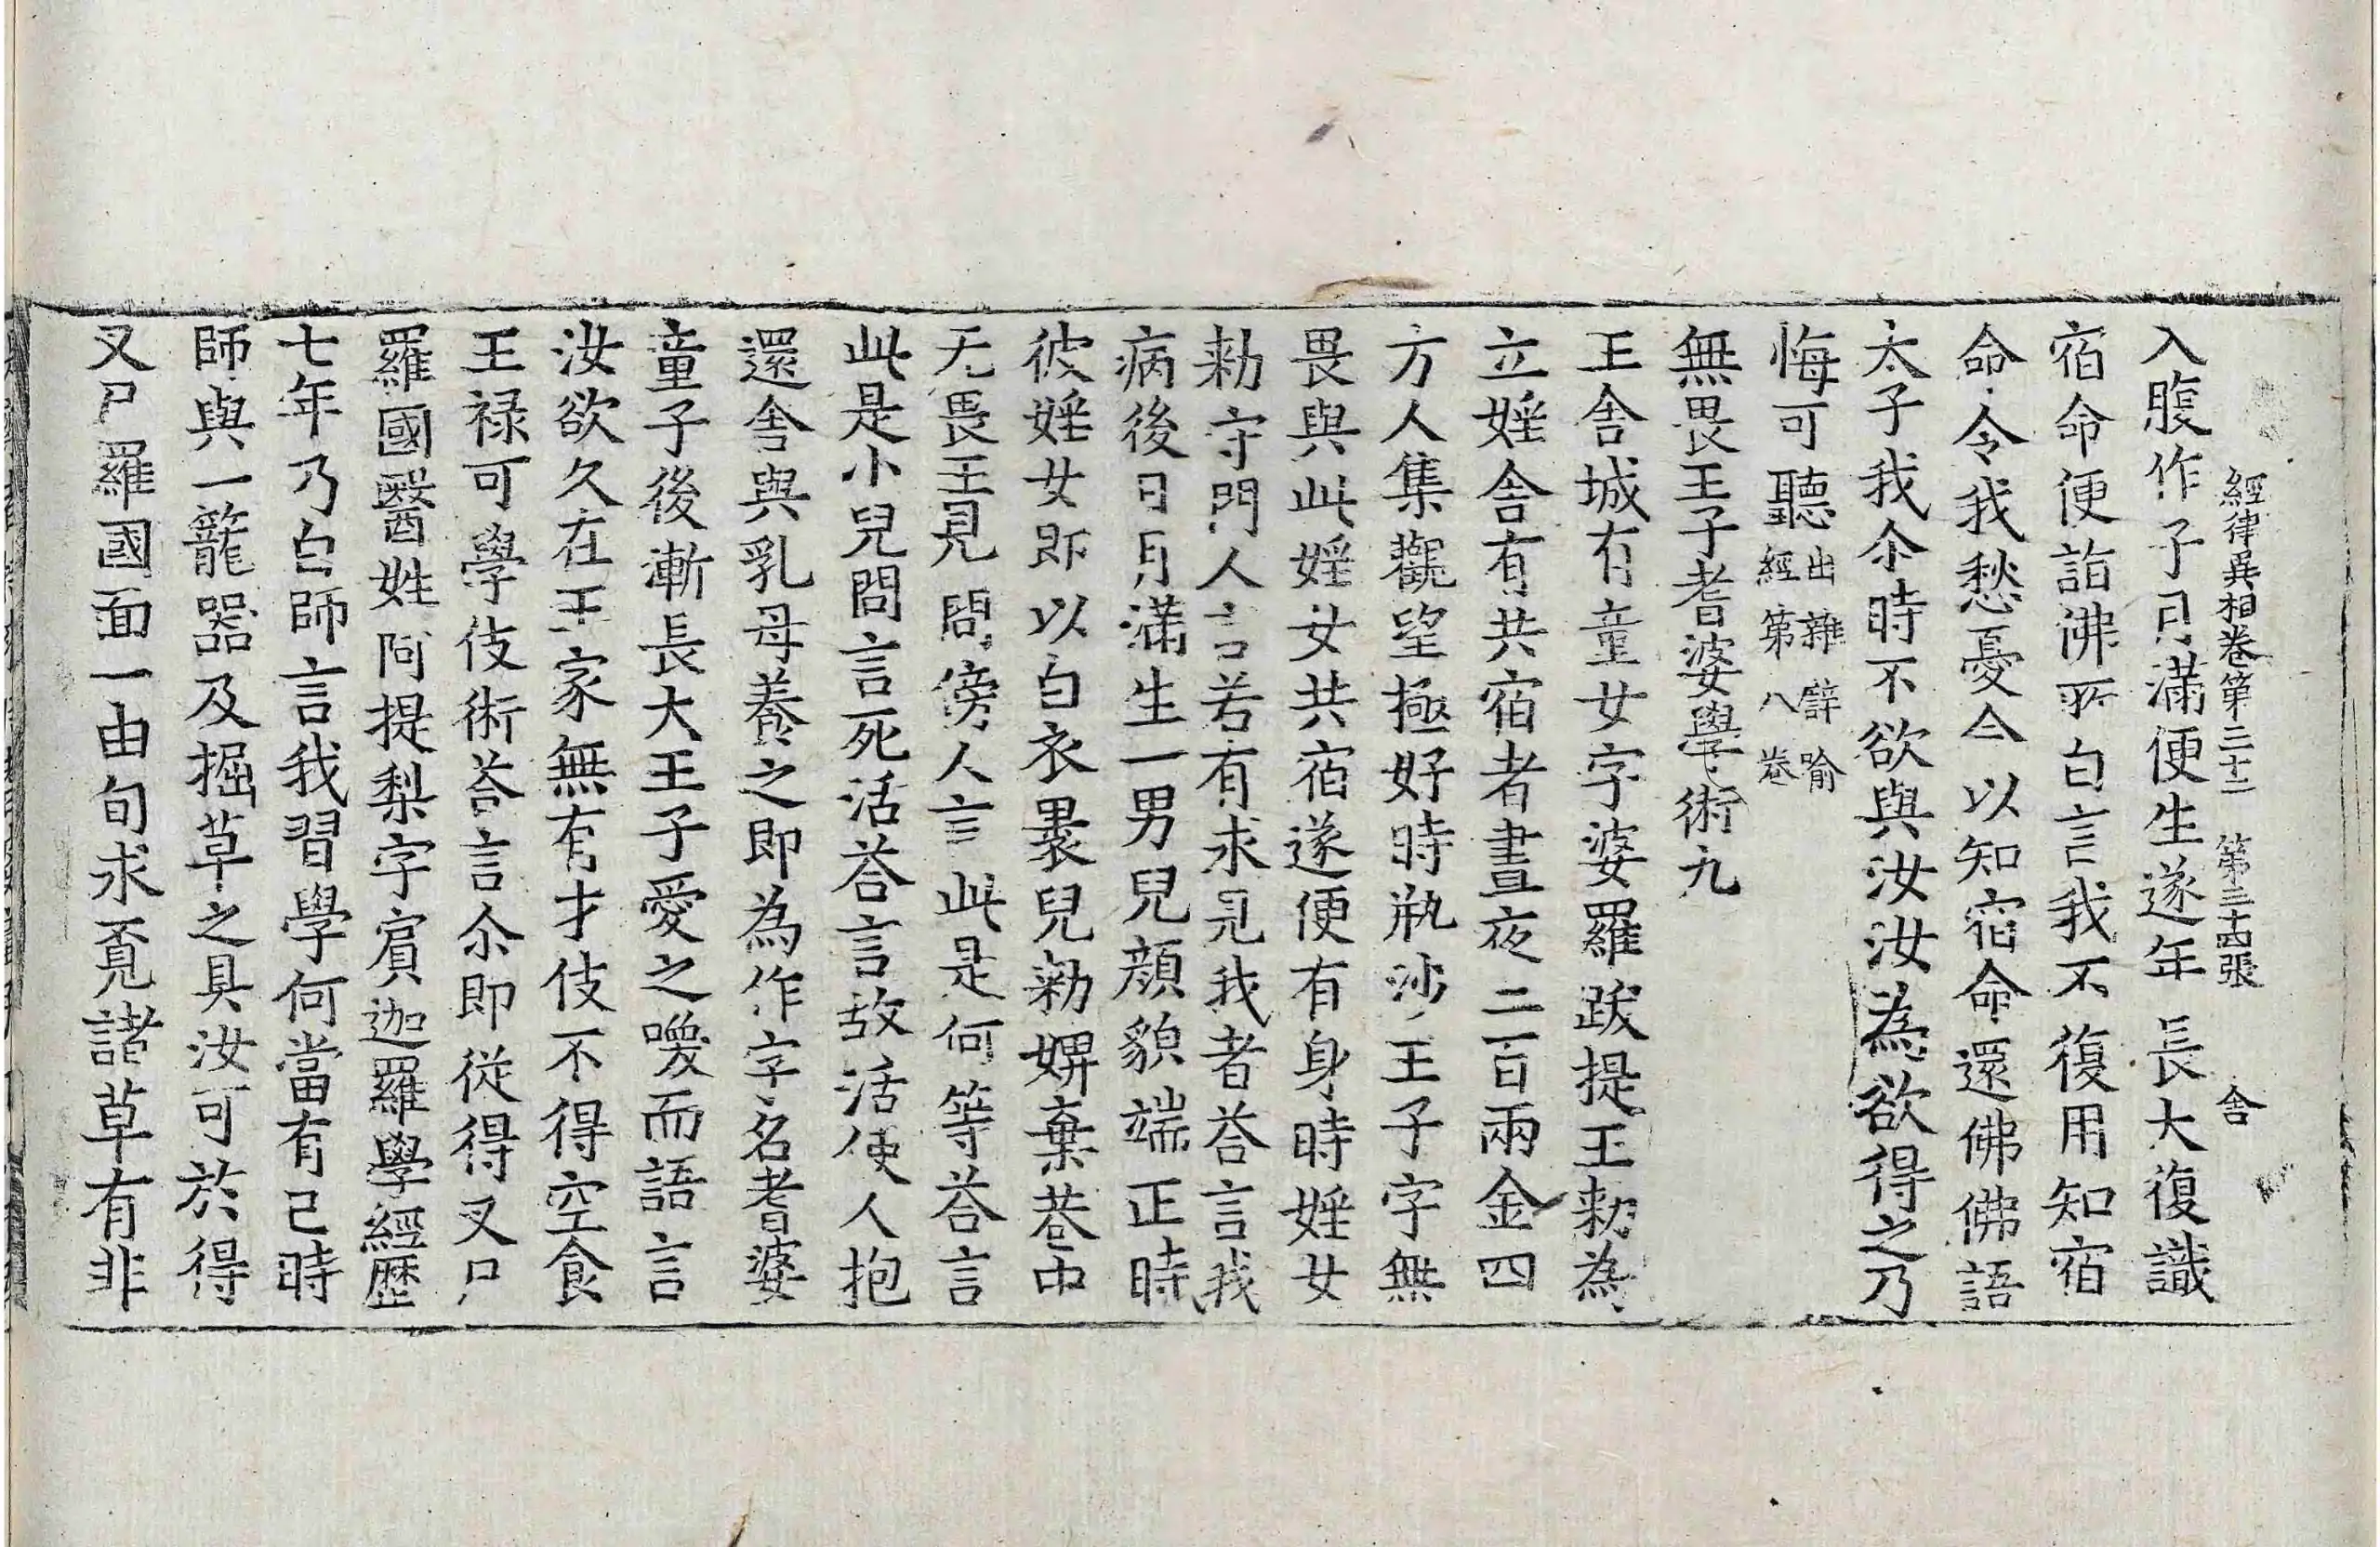 經律異相卷第三十二 第三十四張 舍
入腹作子月滿便生遂年長大復識
宿命便詣佛所白言我不復用知宿
命令我愁憂今以知宿命還佛佛語
太子我尒時不欲與汝汝為欲得之乃
悔可聽出雜譬喻
經第八卷
無畏王子耆婆學術九
王舍城有童女字婆羅跋提王勑為
立婬舍有共宿者晝夜二百兩金四
方人集觀望極好時瓶沙王子字無
畏與此婬女共宿遂便有身時婬女
勑守門人言若有求見我者荅言我
病後日月滿生一男兒顏貌端正時
彼婬女即以白衣褁兒勑婢棄巷中
无畏王見問傍人言此是何等荅言
此是小兒問言死活荅言故活使人抱
還舍與乳母養之即為作字名耆婆
童子後漸長大王子愛之喚而語言
汝欲久在王家無有才伎不得空食
王禄可學伎術荅言尒即從得叉尸
羅國醫姓阿提梨字賔迦羅學經歷
七年乃白師言我習學何當有已時
師與一籠器及掘草之具汝可於得
叉尸羅國面一由旬求覔諸草有非